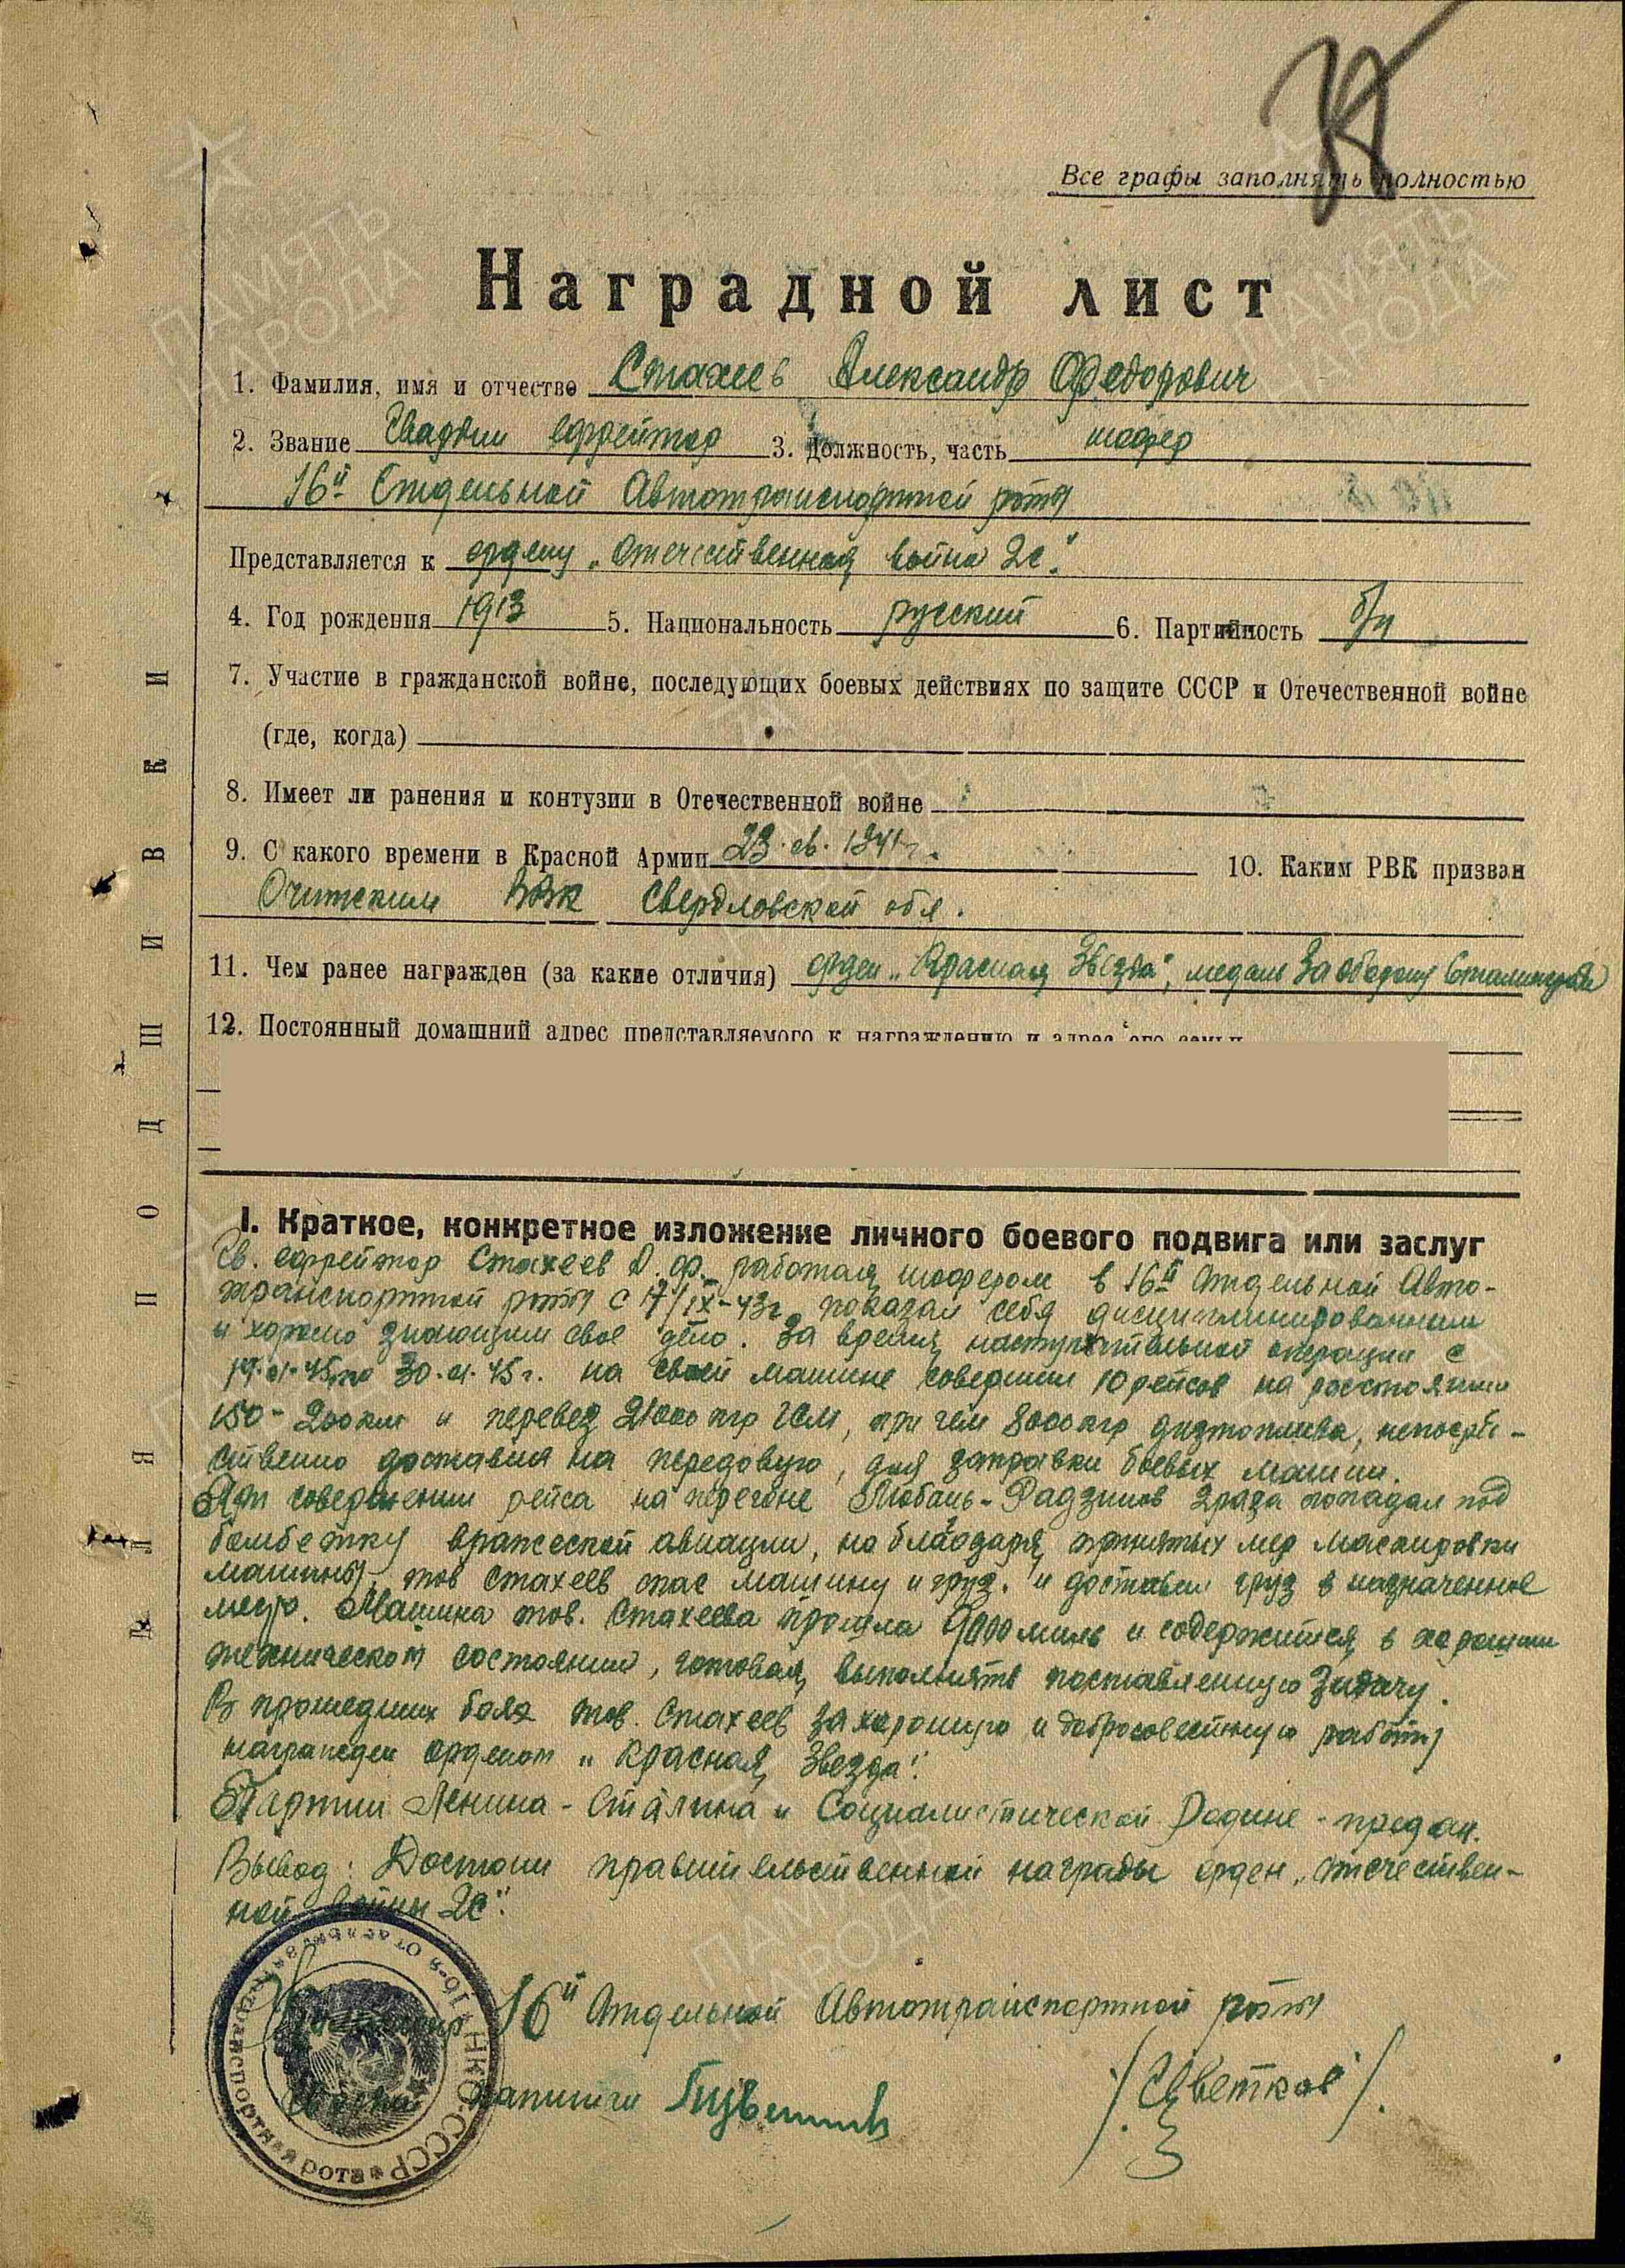 Все графы заполнять полностью
Наградной лист
1. Фамилия, имя и отчество Стахеев Александр Федорович
2. Звание Гвардии ефрейтор 3. Должность, часть шофер
16й Отдельной Автотранспортной роты
Представляется к ордену „Отечественная война 2с."
4. Год рождения 1913 5. Национальность русский 6. Партийность б/п
7. Участие в гражданской войне, последующих боевых действиях по защите СССР и Отечественной войне
(где, когда)
8. Имеет ли ранения и контузии в Отечественной войне
9. С какого времени в Красной Армии 23. 1941г. 10. Каким РВК призван
Ачитским РВК Свердловской обл.
11. Чем ранее награжден (за какие отличия) орден „Красная Звезда", медаль За оборону Сталинграда
12. Постоянный домашний адрес представляемого к награждению и адрес его семьи
I. Краткое, конкретное изложение личного боевого подвига или заслуг
Гв. ефрейтор Стахеев А. Ф. работая шофером в 16й Отдельной Авто-
транспортной роты с 17/IX-43г показал себя дисциплинированным
и хорошо знающим свое дело. За время наступательной операции с
по 30.01.45г. на своей машине совершил 10 рейсов на расстоянии
150-200км и перевез 21000 кгр ГСМ, при чем 8000 кгр дизтоплива, непосред-
ственно доставил на передовую, для заправки боевых машин.
При совершении рейса на перегоне Любань-Радзинов 2 раза попадал под
бомбежку вражеской авиации, но благодаря принятых мер маскировки
машины, тов Стахеев спас машину и груз. и доставил груз в назначенное
место. Машина тов. Стахеева прошла 9000 миль и содержится в хорошем
техническом состоянии, готовая выполнять поставленную задачу.
В прошедших боях тов. Стахеев за хорошую и добросовестную работу
награжден орденом „Красная Звезда".
Партии Ленина-Сталина и Социалистической Родине - предан.
Вывод: Достоин правительственной награды орден „Отечествен-
ной войны 2с".
Командир 16й Отдельной Автотранспортной роты
Гвардии капитан /Цветков/.
НКО-СССР 16-я Отдельная автотранспортная рота
ДЛЯ ПОДШИВКИ
ПАМЯТЬ НАРОДА